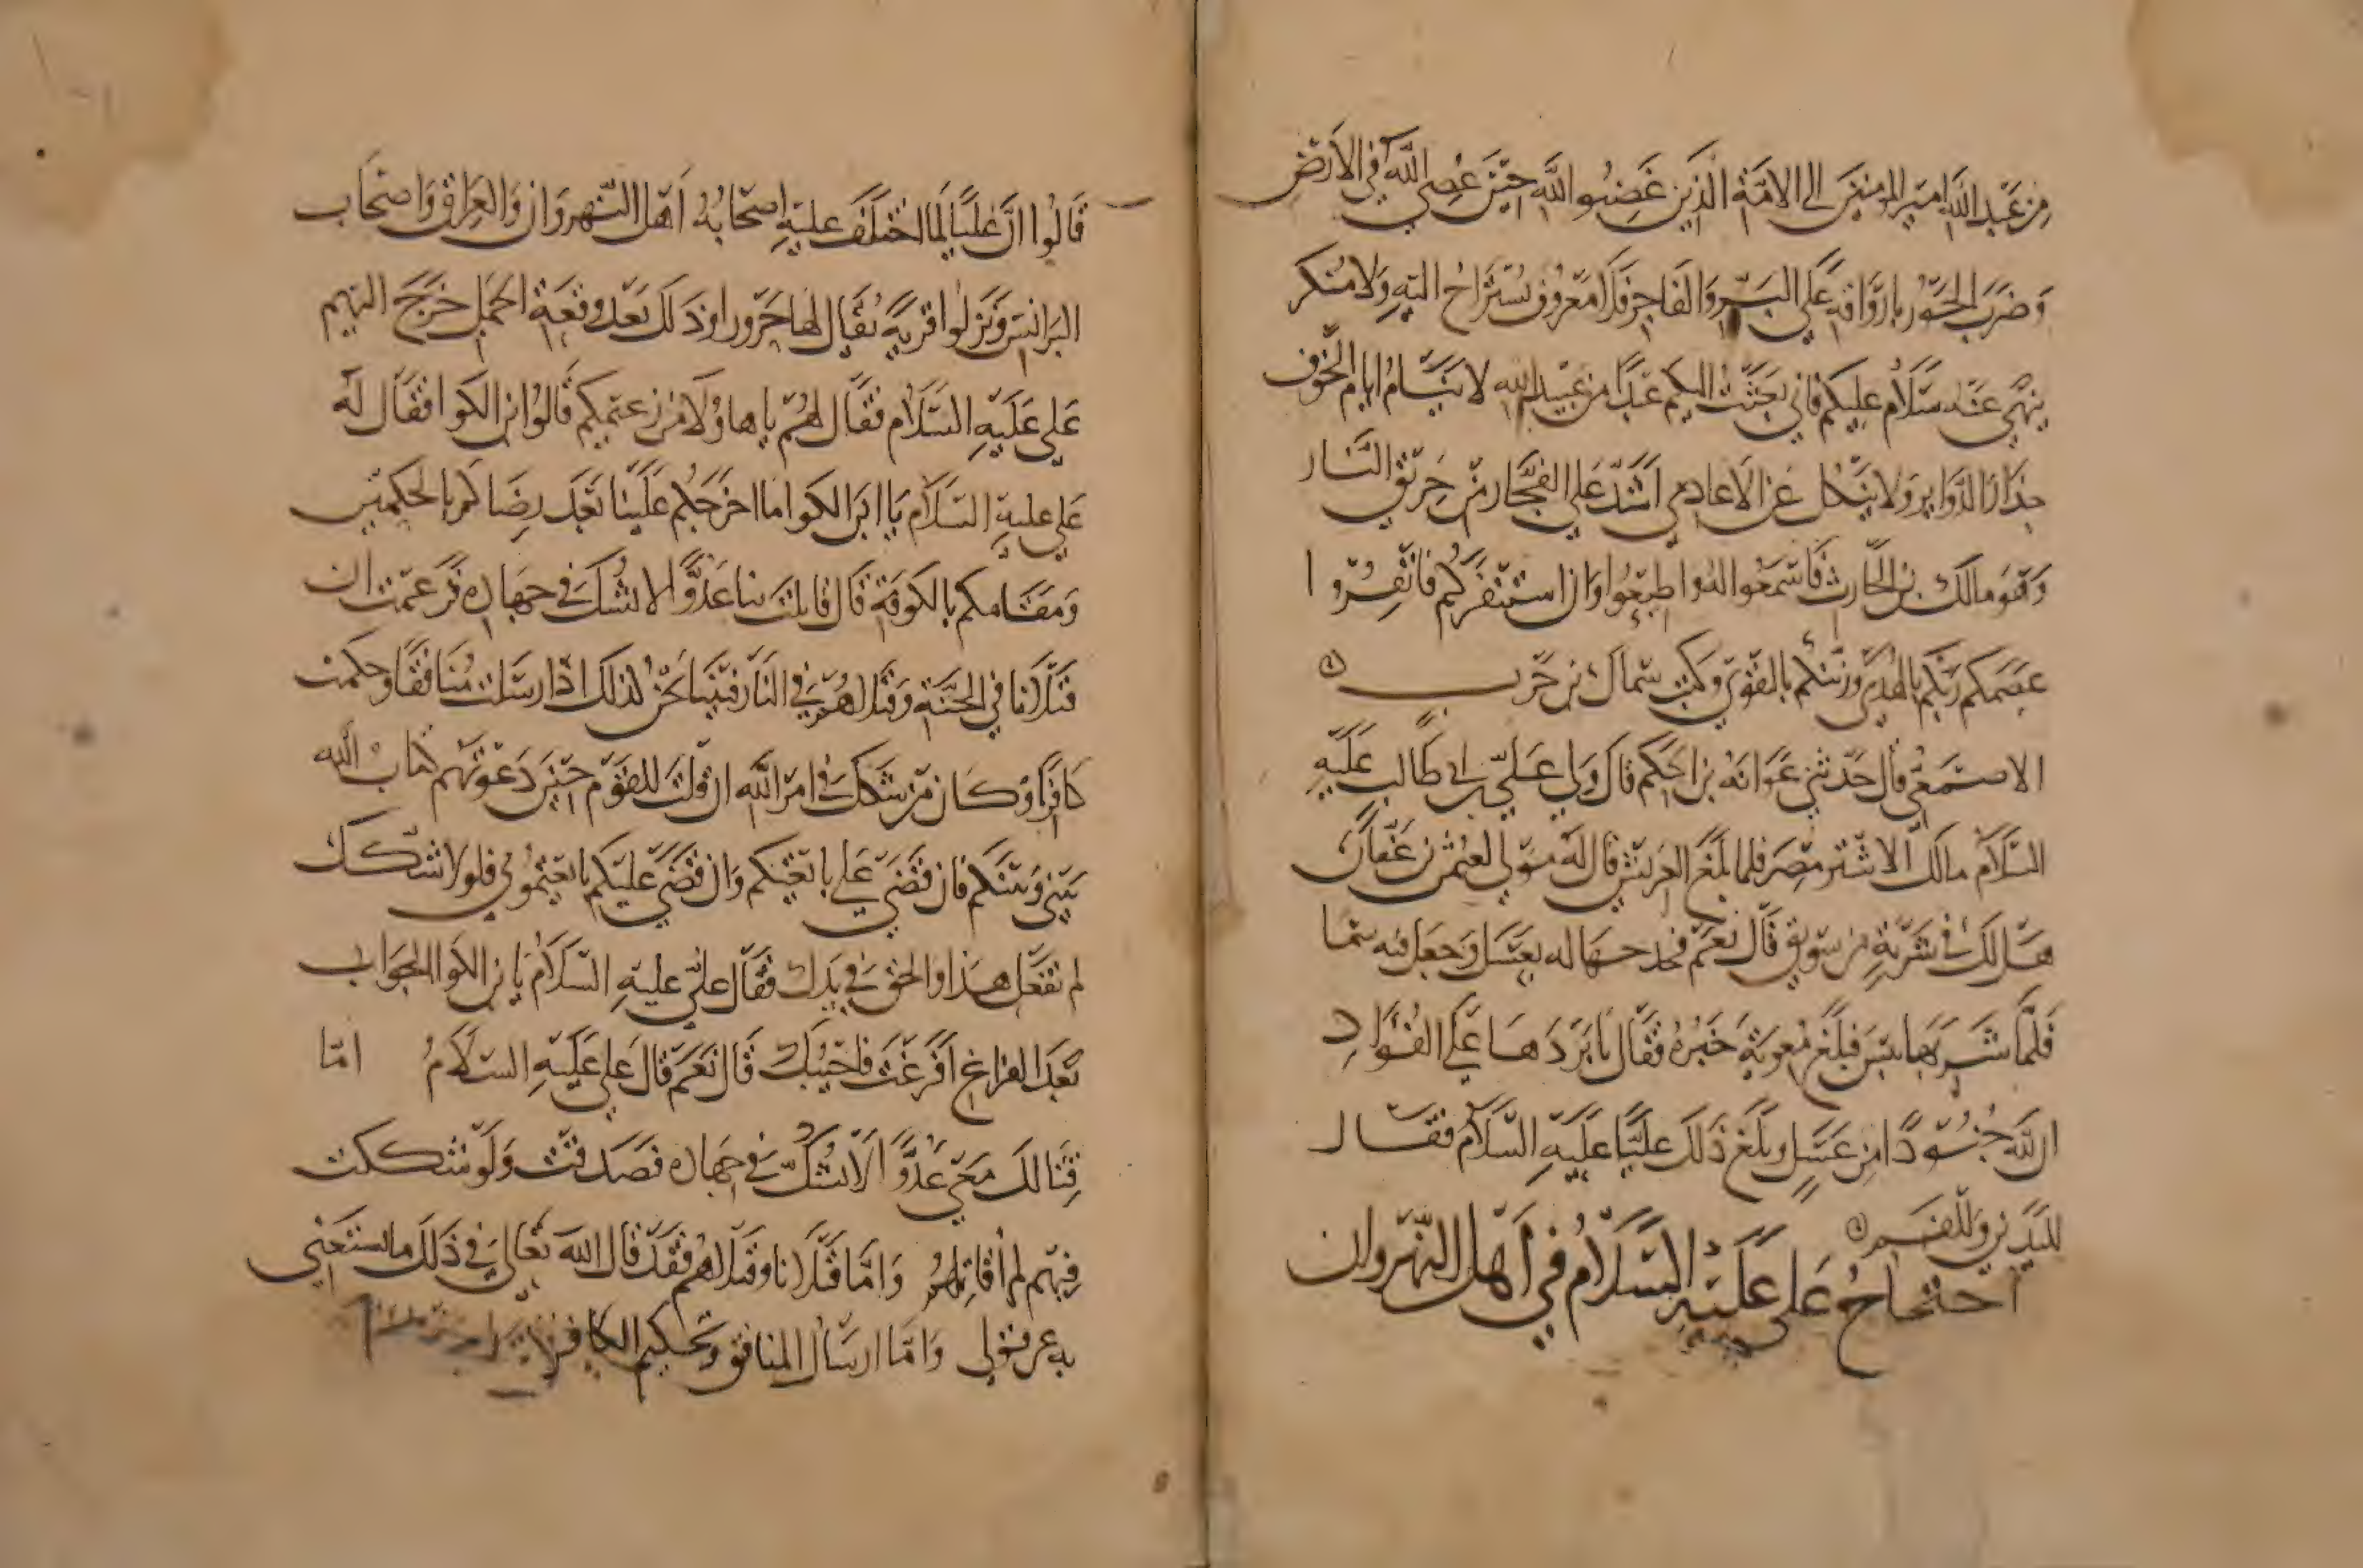 من عبد الله امير المومنين الى الامة الذين غضبوا لله حين عصي الله في الارض
وضرب الجور بارواقه على البر والفاجر فلا معروف يستراح اليه ولا منكر
ينهى عنه سلام عليكم فاني بعثت اليكم عبدا من عبيد الله لا ينام ايام الخوف
حذار الدواير ولا ينكل عن الاعادي اشد على الفجار من حريق النار
وهو مالك بن الحارث فاسمعوا له واطيعوا وان استنفركم فانفروا
عصمكم ربكم بالهدى وزينكم بالتقوى وكتب سماك بن حرب
الاصمعي قال حدثني عوانة بن الحكم قال ولي علي بن ابي طالب عليه
السلام مالك الاشتر مصر فلما بلغ العريش قال له مولى لعثمن بن عفان
هل لك في شربة من سويق قال نعم فجدحها له بعسل وجعل فيه سما
فلما شربها يبس فبلغ معوية خبره فقال يا بردها على الفواد
ان لله جنودا من عسل وبلغ ذلك عليا عليه السلام فقال
لليدين وللفم
احتجاج علي عليه السلام في اهل النهروان
قالوا ان عليا لما اختلف عليه اصحابه اهل النهروان والعراق واصحاب
البرانس ونزلوا قرية يقال لها حرورا وذلك بعد وقعة الجمل خرج اليهم
علي عليه السلام فقال لهم يا هاولا من زعيمكم قالوا ابن الكوا فقال له
علي عليه السلام يا ابن الكوا ما اخرجكم علينا بعد رضاكم بالحكمين
ومقامكم بالكوفة قال قاتلت بنا عدوا لا نشك في جهاده فزعمت ان
قتلانا في الجنة وقتلاهم في النار فبينا نحن كذلك اذ ارسلت منافقا وحكمت
كافرا وكان من شكك في امر الله ان قلت للقوم حين دعوتهم كتاب الله
بيني وبينكم فان قضي علي بايعتكم وان قضي عليكم بايعتموني فلولا شكك
لم تفعل هذا والحق في يدك فقال علي عليه السلام يا بن الكوا الجواب
بعد الفراغ افرغت فاجيبك قال نعم قال علي عليه السلام اما
قتالك معي عدوا لا نشك في جهاده فصدقت ولو شككت
فيهم لم اقاتلهم واما قتلانا وقتلاهم فقد قال الله تعالى في ذلك ما يستغنى
به عن قولي واما ارسال المنافق وتحكيم الكافر